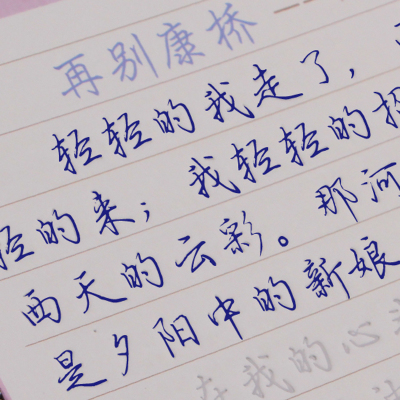 再别康桥
轻轻的我走了，
轻的来；我轻轻的招
西天的云彩。那河
是夕阳中的新娘
在我的心